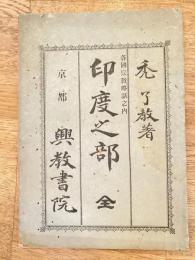 禿了教著
各國宗教略話之内
印度之部 全
京都 興教書院